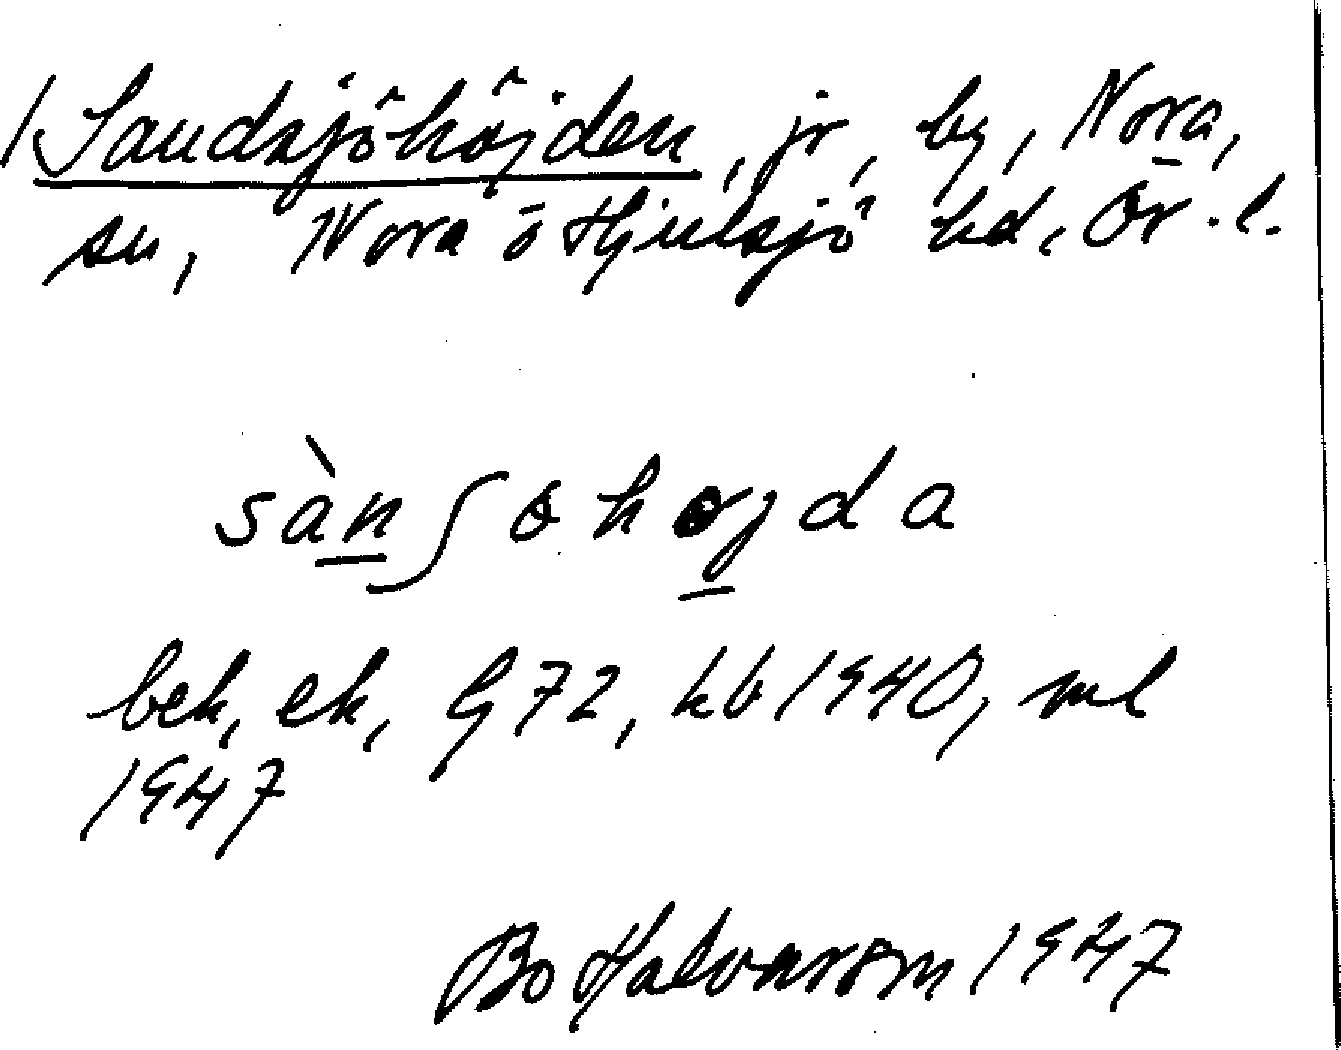 / Sandsjöhöjden, jr, by, Nora,
sn, Nora o Hjulsjö hd, Ör. l.
sàn ʃ ö h ø j d a
bek, ek, G 72, kb 1940, ml
1947
Bo Halvarson 1947